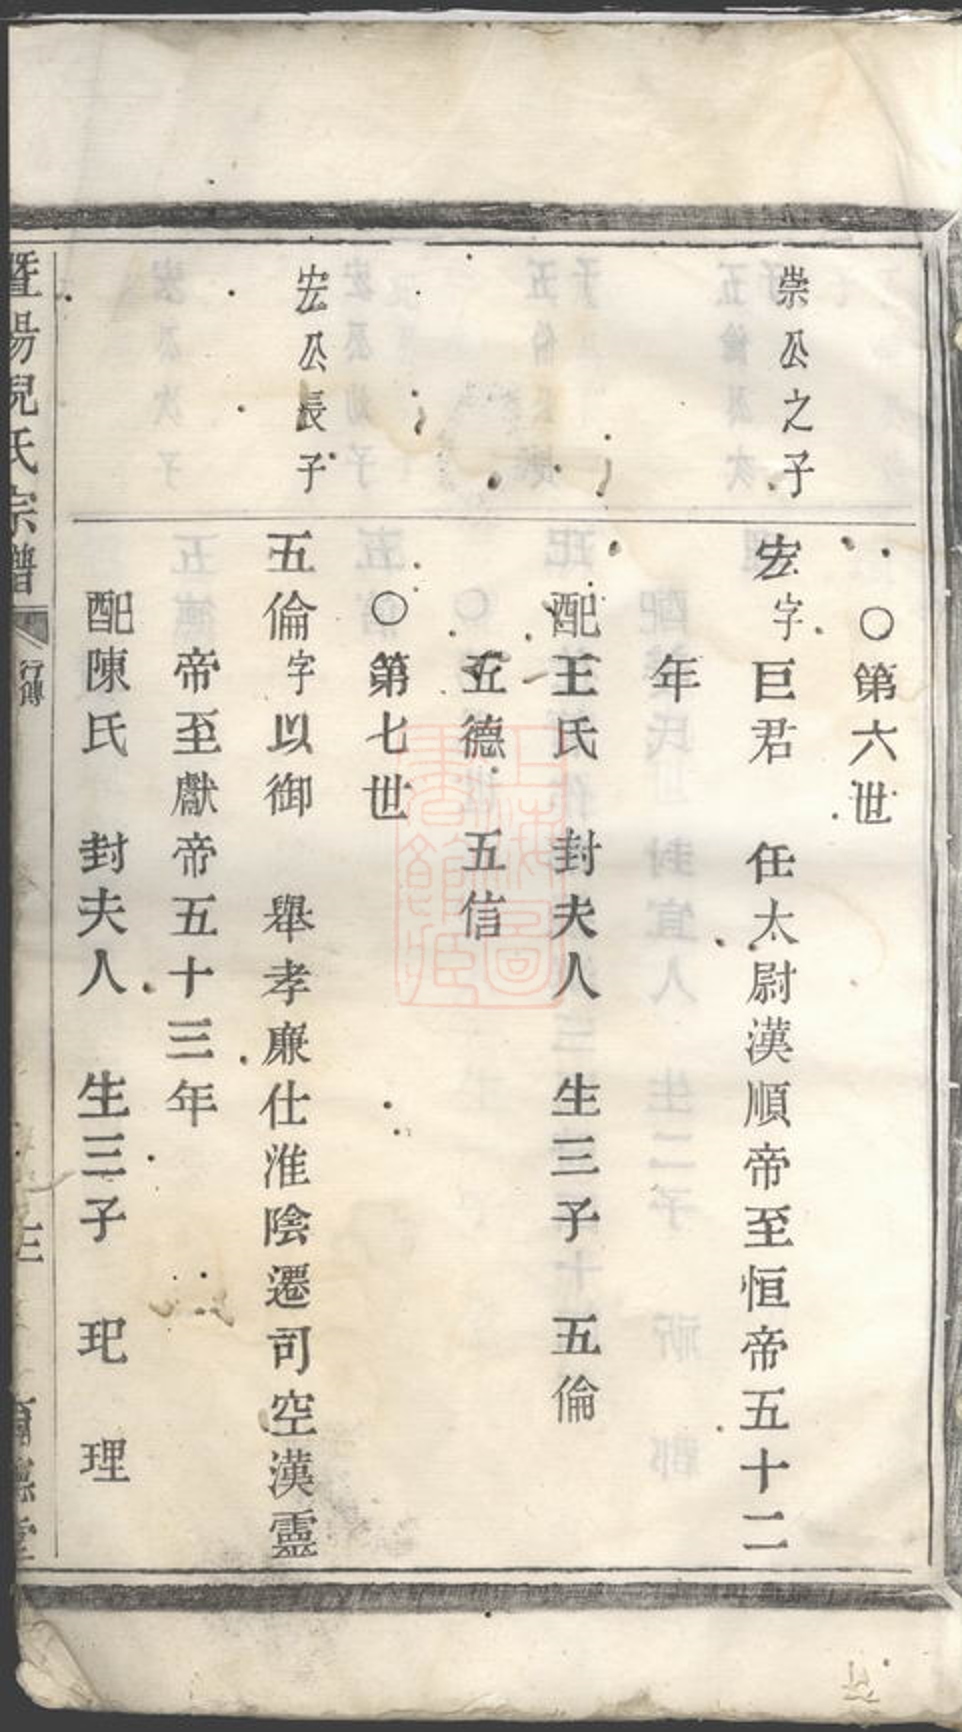 ○第六世
崇公之子
宏字巨君　任太尉漢順帝至恒帝五十二
年
配王氏　封夫人　生三子　五倫
五德　五信
○第七世
宏公長子
五倫字以御　舉孝廉仕淮陰遷司空漢靈
帝至獻帝五十三年
配陳氏　封夫人　生三子　玘　理
暨陽倪氏宗譜
行傳
三
上海圖書館藏